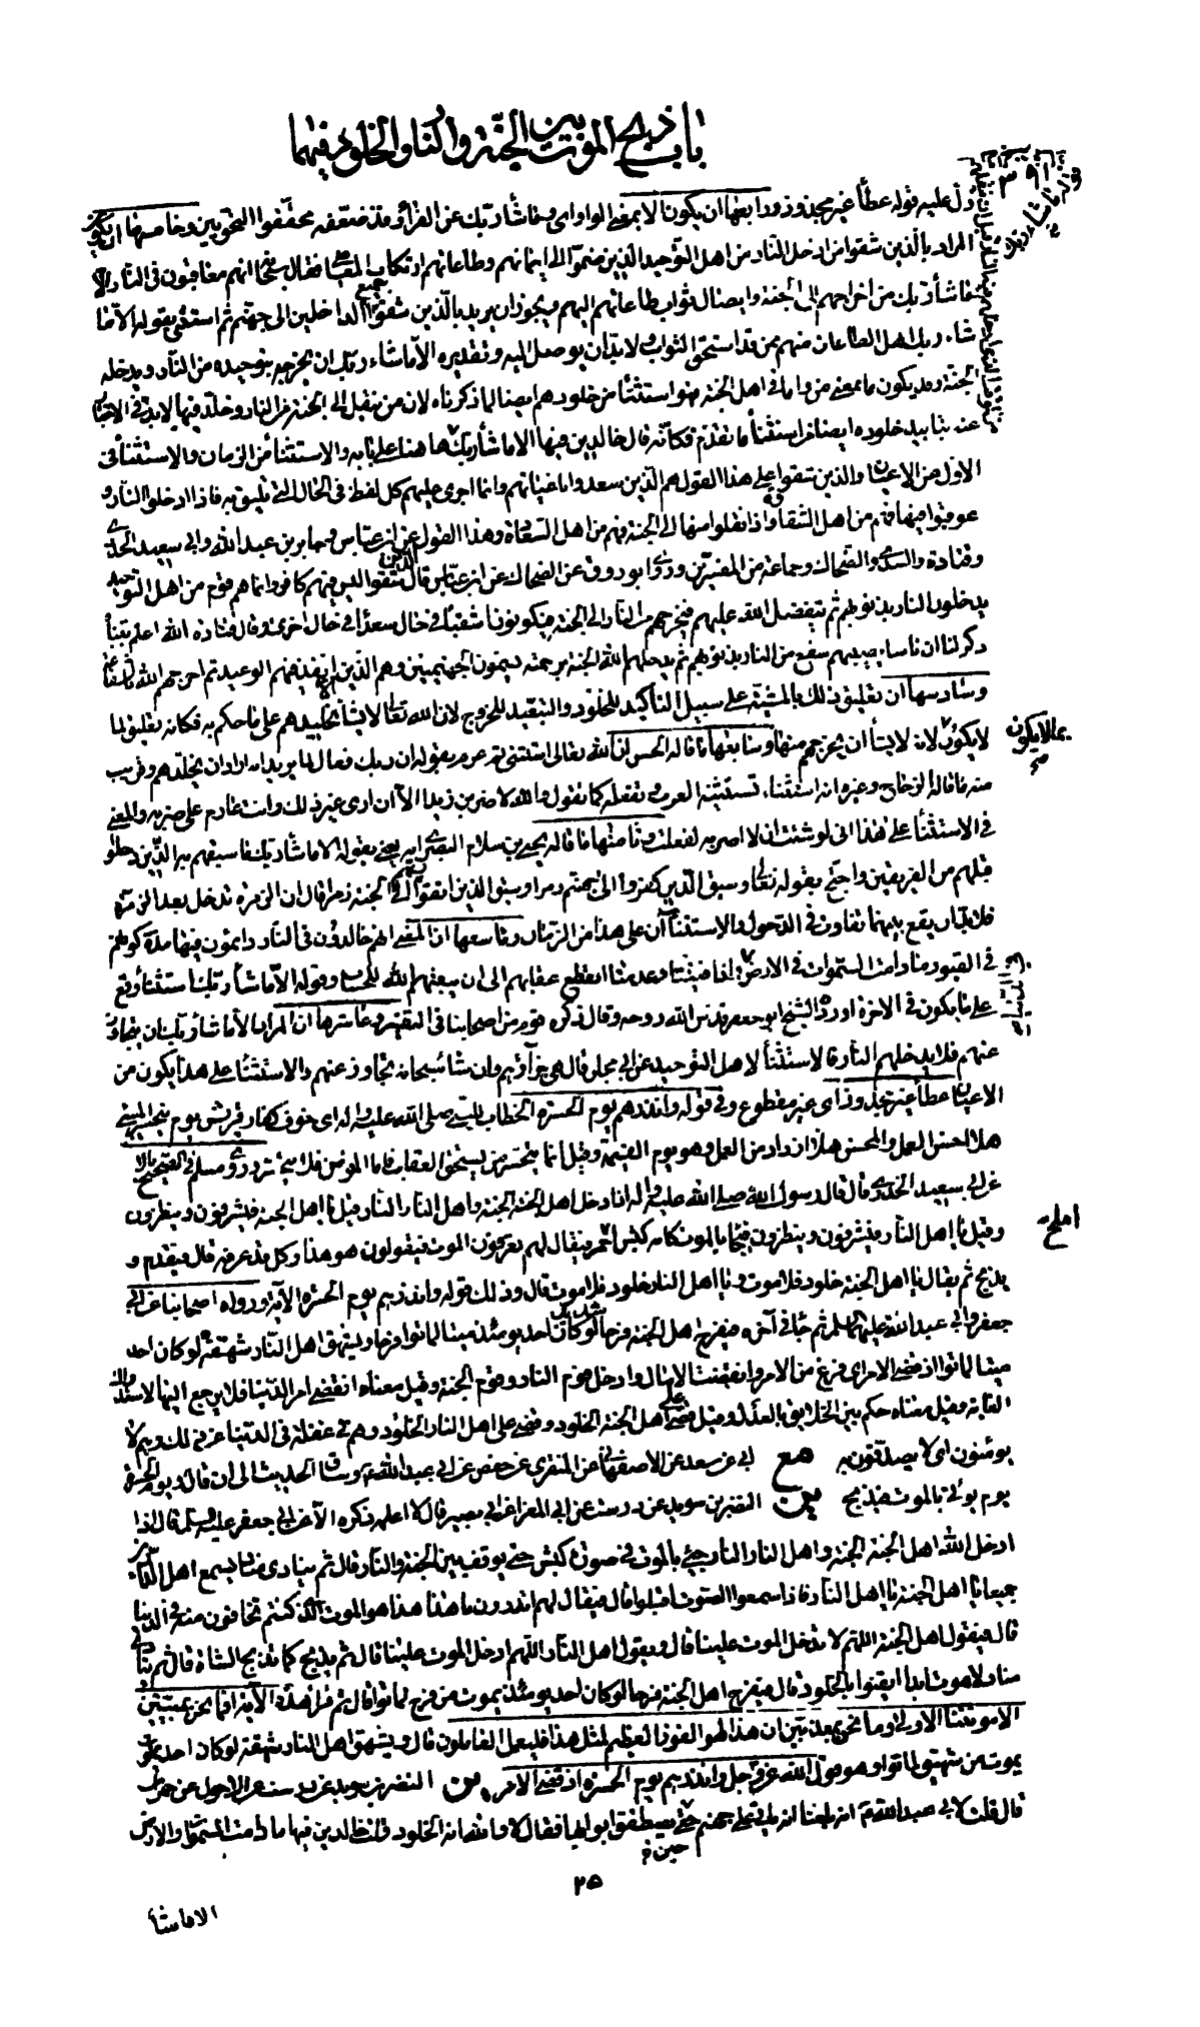 باب ذبح الموت بين الجنة والنار والخلود فيهما
دل عليه قوله عطاء غير مجذوذ ورابعها ان يكون الا بمعنى الواو اى وما شاء ربك عن الفراء وقد ضعفه محققوا النحويين وخامسها ان يكون
المراد بالذين شقوا من ادخل النار من اهل التوحيد الذين ضموا الى ايمانهم وطاعاتهم ارتكاب المعاصى فقال سبحانه انهم معاقبون فى النار الا
ما شاء ربك من اخراجهم الى الجنة وايصال ثواب طاعاتهم اليهم ويجوز ان يريد بالذين شقوا جميع الداخلين الى جهنم ثم استثنى بقوله الا ما
شاء ربك اهل الطاعات منهم ممن قد استحق الثواب ولا بد ان يوصل اليه وتقديره الا ما شاء ربك ان يخرجه بتوحيده من النار ويدخله
الجنة وقد يكون ما بمعنى من واما فى اهل الجنة فهو استثناء من خلودهم ايضا لما ذكرناه لان من ينقل الى الجنة من النار وخلد فيها لا بد فى الاخبار
عنه بتابيد خلوده ايضا من استثناء ما تقدم فكانه قال خالدين فيها الا ما شاء ربك ها هنا على بابه والاستثناء من الزمان والاستثناء فى
الاول من الاعيان والذين شقوا على هذا القول هم الذين سعدوا باعيانهم وانما اجرى عليهم كل لفظ فى الحال التى تليق به فاذا ادخلوا النار و
عوقبوا فيها فهم من اهل الشقاوة واذا نقلوا منها الى الجنة فهم من اهل السعادة وهذا القول عن ابن عباس وجابر بن عبد الله وابى سعيد الخدرى
وقتادة والسدى والضحاك وجماعة من المفسرين وروى ابو روق عن الضحاك عن ابن عباس قال الذين شقوا ليس فيهم كافر وانما هم قوم من اهل التوحيد
يدخلون النار بذنوبهم ثم يتفضل الله عليهم فيخرجهم من النار الى الجنة فيكونون اشقياء فى حال سعداء فى حال اخرى وقال قتادة الله اعلم بثنياه
ذكر لنا ان ناسا يصيبهم سفع من النار بذنوبهم ثم يدخلهم الله الجنة برحمته يسمون الجهنميين وهم الذين انفذ فيهم الوعيد ثم اخرجهم الله بالشفاعة
وسادسها ان تعليق ذلك بالمشية على سبيل التأكيد للخلود والتبعيد للخروج لان الله تعالى لا يشاء الا تخليدهم على ما حكم به فكانه تعليق لما
لا يكون بما لا يكون لانه لا يشاء ان يخرجهم منها وسابعها ما قاله الحسن ان الله تعالى استثنى ثم عزم بقوله ان ربك فعال لما يريد انه اراد ان يخلدهم وقريب
منه ما قاله الزجاج وغيره انه استثناء تستثنيه العرب وتفعله كما تقول والله لاضربن زيدا الا ان ارى غير ذلك وانت عازم على ضربه والمعنى
فى الاستثناء على هذا انى لو شئت ان لا اضربه لفعلت وثامنها ما قاله يحيى بن سلام البصرى انه يعنى بقوله الا ما شاء ربك ما سبقهم به الذين دخلوا
قبلهم من الفريقين واحتج بقوله تعالى وسيق الذين كفروا الى جهنم زمرا وسيق الذين اتقوا ربهم الى الجنة زمرا قال ان الزمرة تدخل بعد الزمرة
فلا بد ان يقع بينهما تفاوت فى الدخول والاستثناءان على هذا من الزمان وتاسعها ان المعنى انهم خالدون فى النار دائمون فيها مدة كونهم
فى القبور ما دامت السموات والارض فى الدنيا واذا فنيتا وعدمتا انقطع عقابهم الى ان يبعثهم الله للحساب وقوله الا ما شاء ربك استثناء وقع
على ما يكون فى الاخرة اورده الشيخ ابو جعفر قدس الله روحه وقال ذكره قوم من اصحابنا فى التفسير وعاشرها ان المراد الا ما شاء ربك ان يتجاوز
عنهم فلا يدخلهم النار فالاستثناء لاهل التوحيد عن ابى مجلز قال هى جزاؤهم وان شاء سبحانه تجاوز عنهم والاستثناء على هذا يكون من
الاعيان عطاء غير مجذوذ اى غير مقطوع وفى قوله وانذرهم يوم الحسرة الخطاب للنبى صلى الله عليه واله اى خوف كفار قريش يوم يتحسر المسيئ
هلا احسن العمل والمحسن هلا ازداد من العمل وهو يوم القيمة وقيل انما يتحسر من يستحق العقاب فاما المؤمن فلا يتحسر وروى مسلم فى الصحيح بالاسناد
عن ابى سعيد الخدرى قال قال رسول الله صلى الله عليه واله اذا دخل اهل الجنة الجنة واهل النار النار قيل يا اهل الجنة فيشرفون وينظرون
وقيل يا اهل النار فيشرفون وينظرون فيجاء بالموت كانه كبش املح فيقال لهم تعرفون الموت فيقولون هو هذا وكل قد عرفه قال فيقدم و
يذبح ثم يقال يا اهل الجنة خلود فلا موت ويا اهل النار خلود فلا موت قال وذلك قوله وانذرهم يوم الحسرة الاية ورواه اصحابنا عن ابى
جعفر وابى عبد الله عليهما السلام ثم جاء فى آخره فيفرح اهل الجنة فرحا لو كان احد يومئذ ميتا لماتوا فرحا ويشهق اهل النار شهقة لو كان احد
ميتا لماتوا اذ قضى الامر اى فرغ من الامر وانقضت الآمال وادخل قوم النار وقوم الجنة وقيل معناه انقضى امر الدنيا فلا يرجع اليها لاستدراك
الفائت وقيل معناه حكم بين الخلايق بالعدل وقيل قضى على اهل الجنة الخلود وقضى على اهل النار الخلود وهم فى غفلة فى الدنيا عن ذلك وهم لا
يؤمنون اى لا يصدقون به مع ابى عن سعد عن الاصفهانى عن المنقرى عن حفص عن ابى عبد الله ع وساق الحديث الى ان قال ويوم الحسرة
يوم يؤتى بالموت فيذبح ين النضر بن سويد عن درست عن ابى المغرا عن ابى بصير قال لا اعلمه ذكره الا عن ابى جعفر عليه السلم قال اذا
ادخل الله اهل الجنة الجنة واهل النار النار جيئ بالموت فى صورة كبش حتى يوقف بين الجنة والنار قال ثم ينادى مناد يسمع اهل الدارين
جميعا يا اهل الجنة يا اهل النار فاذا سمعوا الصوت اقبلوا قال فيقال لهم اتدرون ما هذا هذا هو الموت الذى كنتم تخافون منه فى الدنيا
قال فيقول اهل الجنة اللهم لا تدخل الموت علينا قال ويقول اهل النار اللهم ادخل الموت علينا قال ثم يذبح كما تذبح الشاة قال ثم ينادى
مناد لا موت ابدا ايقنوا بالخلود قال فيفرح اهل الجنة فرحا لو كان احد يومئذ يموت من فرح لماتوا قال ثم قرأ هذه الاية افما نحن بميتين
الا موتتنا الاولى وما نحن بمعذبين ان هذا لهو الفوز العظيم لمثل هذا فليعمل العاملون قال ويشهق اهل النار شهقة لو كان احد يموت
يموت من شهيق لماتوا وهو قول الله عز وجل وانذرهم يوم الحسرة اذ قضى الامر ين النضر بن سويد عن
قال قلت لابى عبد الله ع انه بلغنا انه ياتى على جهنم حين يصطفق ابوابها فقال لا والله انه الخلود قلت خالدين فيها ما دامت السموات والارض
٢٥
الا ما شاء
بما لا يكون
املح